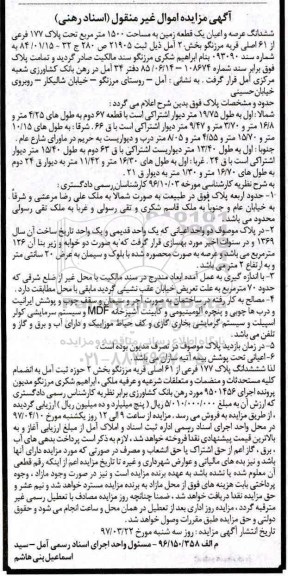 آگهی مزایده اموال غیر منقول (اسناد رهنی)
ششدانگ عرصه و اعیان یک قطعه زمین به مساحت ۱۵۰۰ متر مربع تحت پلاک ۱۷۷ فرعی
از ۶۱ اصلی قریه مرزنگو بخش ۲ آمل ذیل ثبت ۲۱۹۰۵ ص ۲۸۰ ج ۲۲ - ۸۴/۰۱/۱۵ به
شماره سند ۰۹۳۰۹۰ بنام ابراهیم شکری مرزنگو سند مالکیت صادر گردید و تمامت پلاک
فوق برابر سند شماره ۱۰۸۶۷۴ - ۸۵/۰۶/۱۴ دفتر ۲۴ آمل در رهن بانک کشاورزی شعبه
مرکزی آمل قرار گرفت. به نشانی: آمل - روستای مرزنگو - خیابان شالیکار - روبروی
خیابان حسینی
حدود و مشخصات پلاک فوق بدین شرح اعلام می گردد:
شمالا: اول به طول ۱۹/۷۵ متر دیوار اشتراکی است با قطعه ۶۷ دوم به طول های ۴/۲۵ متر و
۱۶/۸ متر و ۳/۷۰ متر و ۹/۴۷ متر دیوار اشتراکی است با ق ۶۶. شرقا: به طول های ۱۰/۱۵
متر و ۱۵/۷۰ متر و ۴/۵۵ متر و ۸/۰۵ متر درب و دیواریست به حریم در ماورای شارع عام.
جنوبا: اول به طول ۱۳/۴۰ متر دیواریست اشتراکی با ق ۶۳ دوم به طول ۱۵/۴۰ متر دیوار
اشتراکی است با ق ۲۴. غربا: اول به طول های ۱۶/۳۰ متر و ۱۱/۴۲ متر به دیوار ق ۲۴ دوم
به طول های ۱۶/۷۰ متر و ۱/۳۰ متر به دیوار ق ۲۱.
به شرح نظریه کارشناسی مورخه ۹۶/۱۰/۰۳ کارشناس رسمی دادگستری:
۱- حدود اربعه پلاک فوق در طبیعت به صورت شمالا به ملک علی رضا مرعشی و شرقا
به خیابان عام و جنوبا به ملک قاسم شکری و تقی رسولی و غربا به ملک تقی رسولی
محدود می باشد.
۲- در پلاک موصوف دو واحد اعیانی که یک واحد قدیمی و یک واحد تاریخ ساخت آن سال
۱۳۶۹ و در سنوات اخیر مورد بهسازی قرار گرفت که به صورت دو خوابه و زیر بنا آن ۱۲۶
مترمربع می باشد و عرصه به صورت محصوره شده با بلوک و سیمان به عرض ۲۰ سانتی متر
و به ارتفاع ۲ متر می باشد.
۳- با اندازه گیری به عمل آمده ابعاد مندرج در سند مالکیت با محل غیر از ضلع شرقی که
حدود ۷۰ مترمربع به علت تعریض خیابان عقب نشینی گردید مابقی با محل مطابقت دارد.
۴- مصالح به کار رفته در ساختمان به صورت آجر و سیمان و سقف چوب و پوشش ایرانیت
و درب ها چوبی و پنجره آلومینیومی و کابینت آشپزخانه MDF و سیستم سرمایشی کولر
اسپیلت و سیستم گرمایشی بخاری گازی و کف حیاط موزاییک و دارای آب و برق و گاز و
تلفن می باشد.
۵- در زمان بازدید پلاک موصوف در تصرف مدیون بوده است.
۶- اعیانی تحت پوشش بیمه آتیه سازان می باشد.
لذا ششدانگ پلاک ۱۷۷ فرعی از ۶۱ اصلی قریه مرزنگو بخش ۲ حوزه ثبت آمل به انضمام
کلیه مستحدثات و منضمات و متعلقات شرعیه و عرفیه ملکی، ابراهیم شکری مرزنگو مدیون
پرونده اجرائی ۹۵۰۱۴۵۶ مورد رهن بانک کشاورزی برابر نظریه کارشناس رسمی دادگستری
که ارزش آن به مبلغ ۵/۰۱۰/۰۰۰/۰۰۰ ریال (پنج میلیارد و ده میلیون ریال) ارزیابی گردیده
، از طریق مزایده به فروش می رسد. مزایده از ساعت ۹ الی ۱۲ روز یکشنبه مورخ ۹۷/۰۴/۱۰
در محل واحد اجرای اسناد رسمی اداره ثبت اسناد و املاک آمل از مبلغ ارزیابی آغاز و به
بالاترین قیمت پیشنهادی نقدا فروخته خواهد شد، لازم به ذکر است پرداخت بدهی های آب
، برق ، گاز اعم از حق اشتراک یا حق انشعاب و مصرف در صورتی که مورد مزایده دارای آنها
باشد و نیز بده های مالیاتی و عوارض شهرداری و غیره تا تاریخ مزایده اعم از اینکه رقم قطعی
آن معلوم شده یا نشده باشد به عهده برنده مزایده است و نیز در صورت وجود مازاد ، وجوه
پرداختی بابت هزینه های فوق از محل مازاد به برنده مزایده مسترد خواهد شد و نیم عشر و
حق مزایده نقدا دریافت خواهد شد. ضمنا چنانچه روز مزایده مصادف با تعطیل رسمی غیر
مترقبه گردد ، مزایده روز اداری بعد از تعطیل در همان محل و ساعت انجام می شود و حقوق
دولتی و حق مزایده طبق مقررات وصول خواهد شد.
تاریخ انتشار آگهی مزایده: روز سه شنبه مورخ ۹۷/۰۳/۲۲
م الف ۹۶/۱۵۰/۳۵۸ - مسئول واحد اجرای اسناد رسمی آمل - سید
اسماعیل بنی هاشم